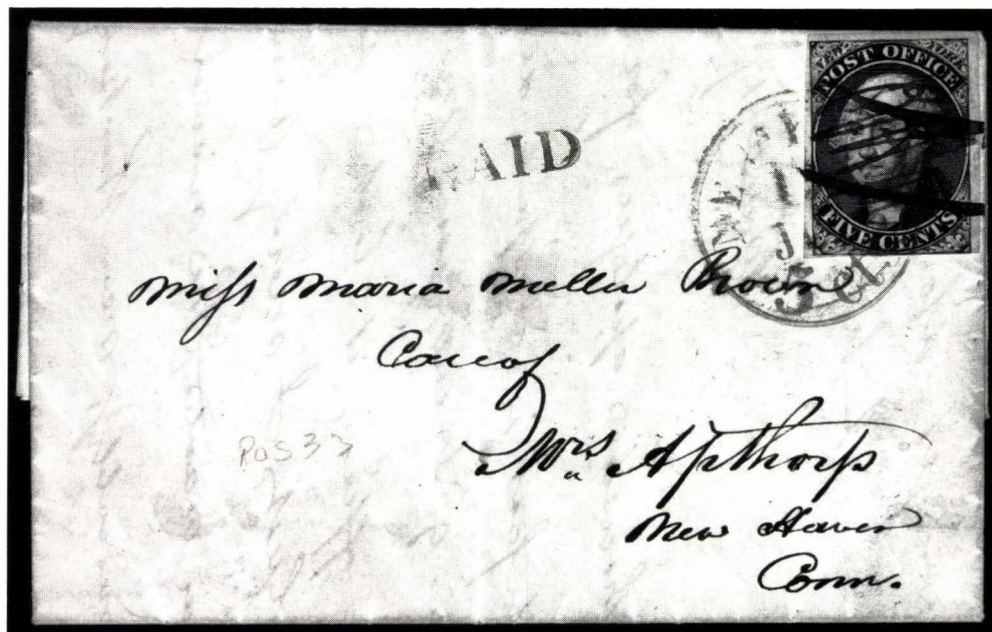 POST OFFICE
FIVE CENTS
AID
5 ct
Miss Maria Miller Brown
Care of
Mrs Apthorp
New Haven
Conn.
POS 33